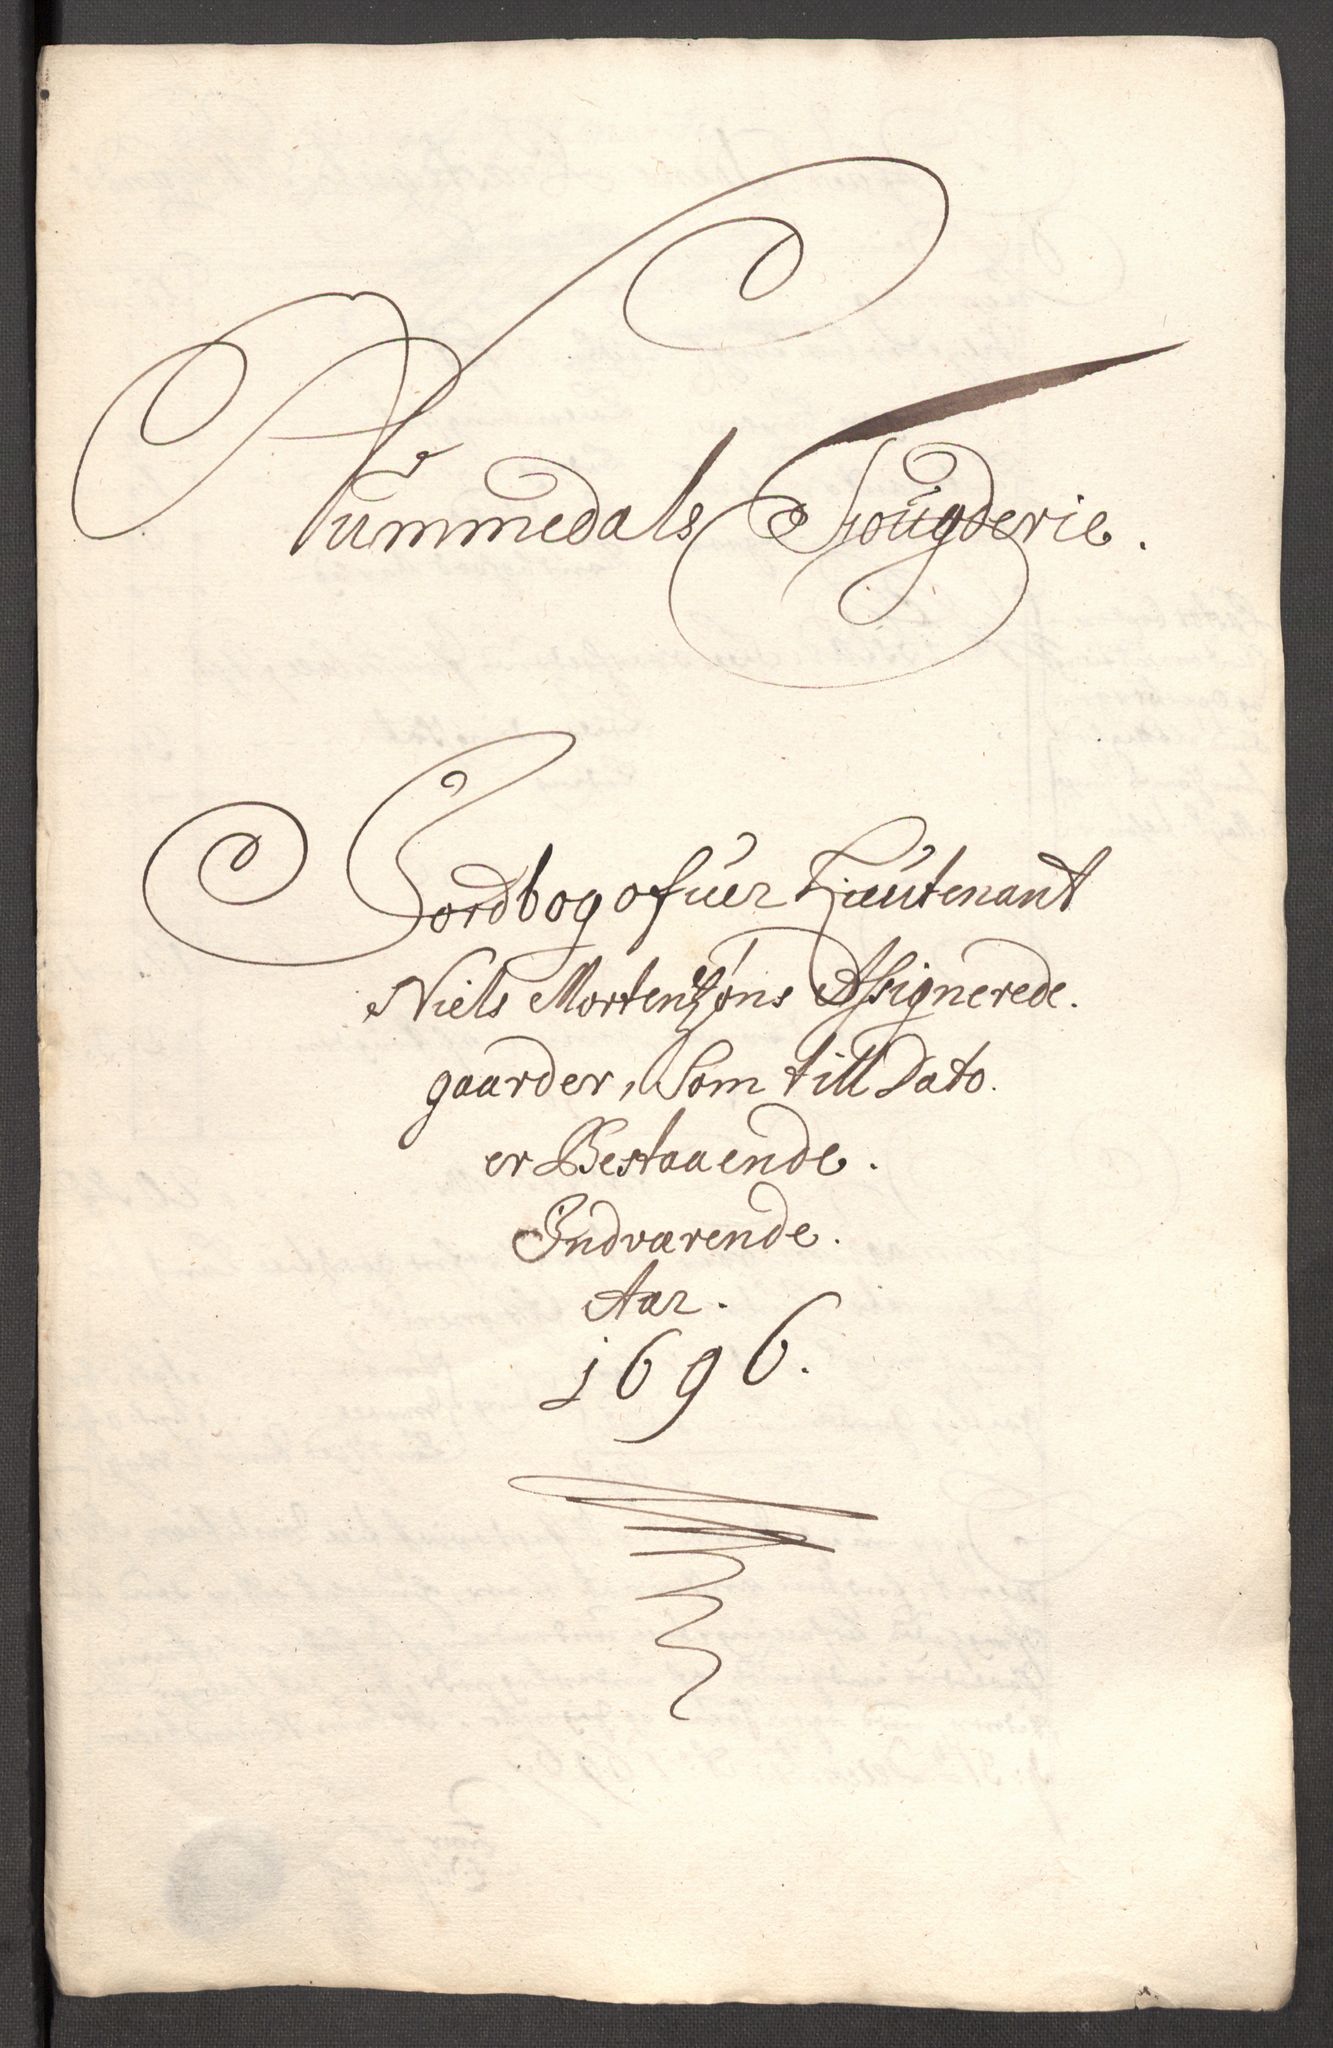 Nummedals Fougderie.
Jordbog ofuer Lieutenant
Niels Mortenszøns Assignerede.
gaarder, Som till Dato.
er Bestaaende.
Indværende.
Aar.
1696.